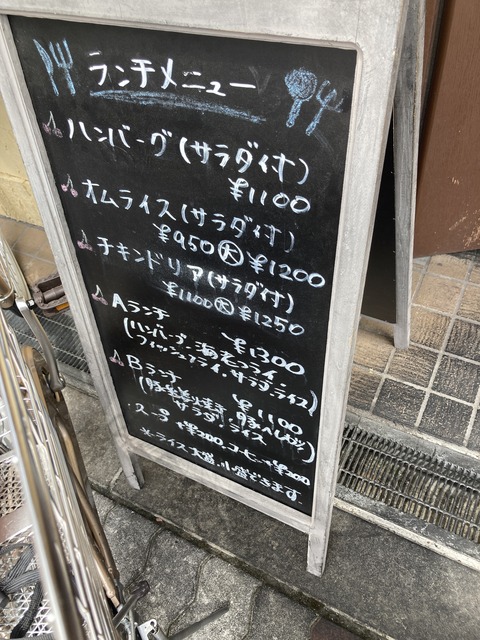 ランチメニュー
ハンバーグ(サラダ付)
¥1100
オムライス(サラダ付)
¥950 大 ¥1200
チキンドリア(サラダ付)
¥1100 大 ¥1250
Aランチ
¥1300
(ハンバーグ.海老フライ.
フィッシュフライ.サラダ.ライス)
Bランチ
¥1100
サラダ.ライス
スープ +¥200.コーヒー +¥200
※ライス大盛.小盛できます